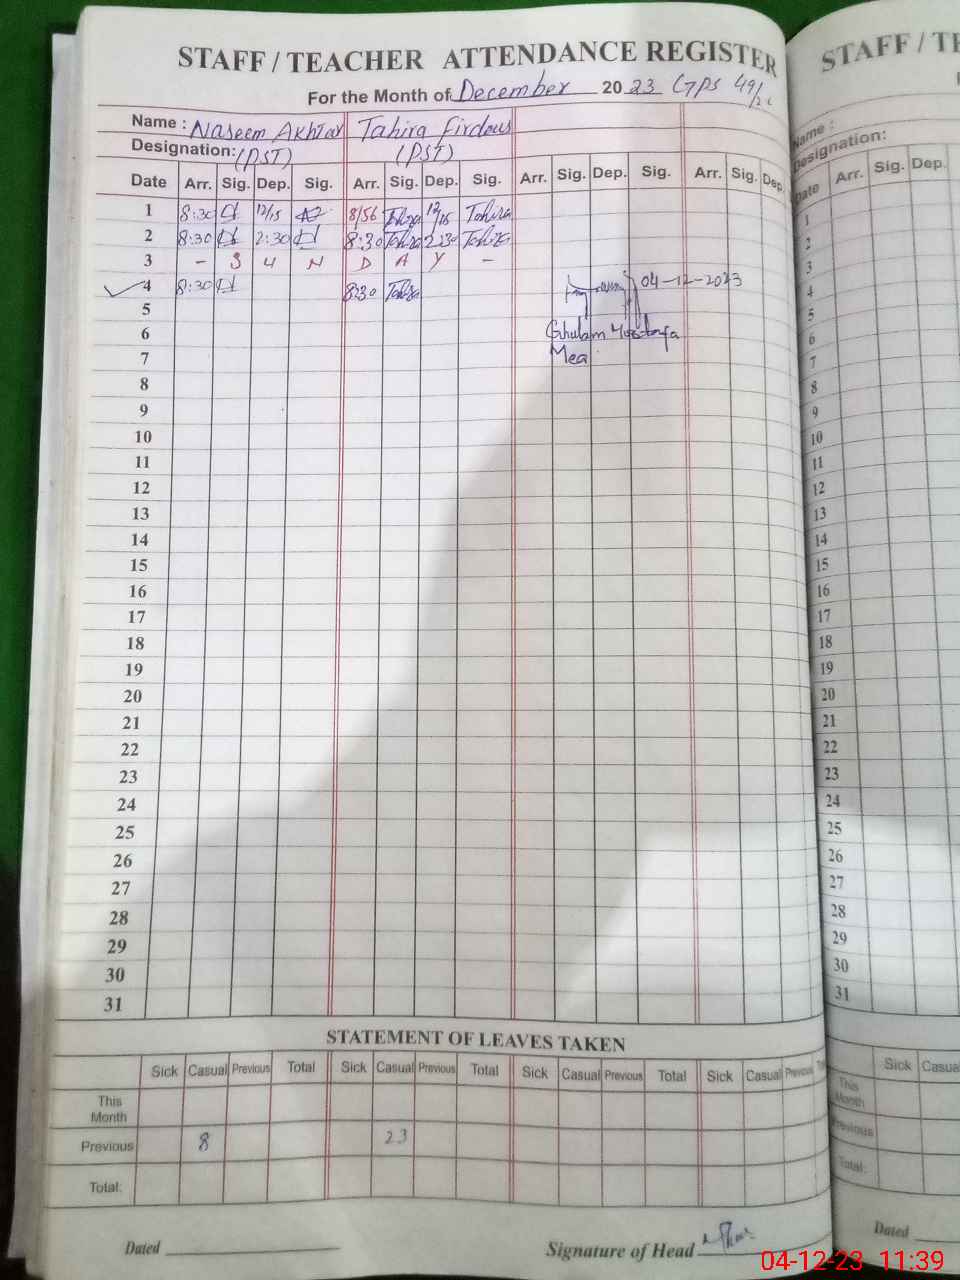 STAFF / TEACHER ATTENDANCE REGISTER
For the Month of December 2023 GPS 49/
Name : Naseem Akhtar Tahira Firdous
Designation: (PST) (PST)
Date Arr. Sig. Dep. Sig. Arr. Sig. Dep. Sig. Arr. Sig. Dep. Sig. Arr. Sig. Dep.
1 8:30 12/15 8/56 Tahira 12/15 Tahira
2 8:30 2:30 8:30 Tahira 2:30 Tahira
3 - S U N D A Y -
4 8:30 8:30 Tahira 04-12-2023
5
6 Ghulam Mustafa
7 Mea
8
9
10
11
12
13
14
15
16
17
18
19
20
21
22
23
24
25
26
27
28
29
30
31
STATEMENT OF LEAVES TAKEN
Sick Casual Previous Total Sick Casual Previous Total Sick Casual Previous Total Sick Casual Previous
This Month
Previous 8 23
Total:
Dated
Signature of Head
STAFF /
Name :
Designation:
Date Arr. Sig. Dep.
1
2
3
4
5
6
7
8
9
10
11
12
13
14
15
16
17
18
19
20
21
22
23
24
25
26
27
28
29
30
31
Sick
This Month
Previous
Total:
Dated
04-12-23 11:39